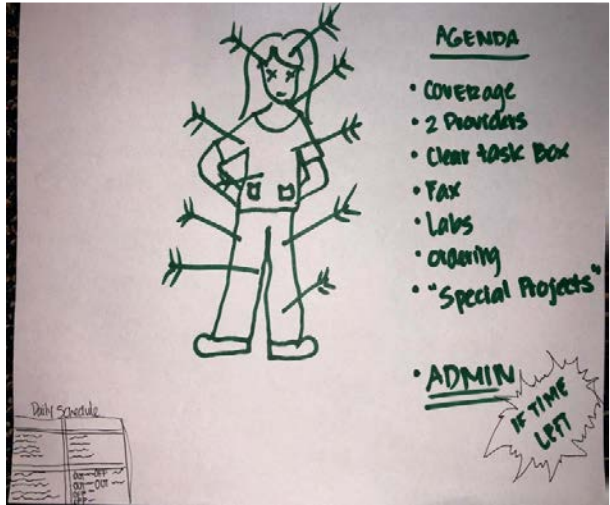 AGENDA
• COVERage
• 2 Providers
• Clear task Box
• Fax
• Labs
• ordering
• "Special Projects"
• ADMIN
IF TIME
LEFT
Daily Schedule
OUT OFF
OUT OUT
OFF
OFF